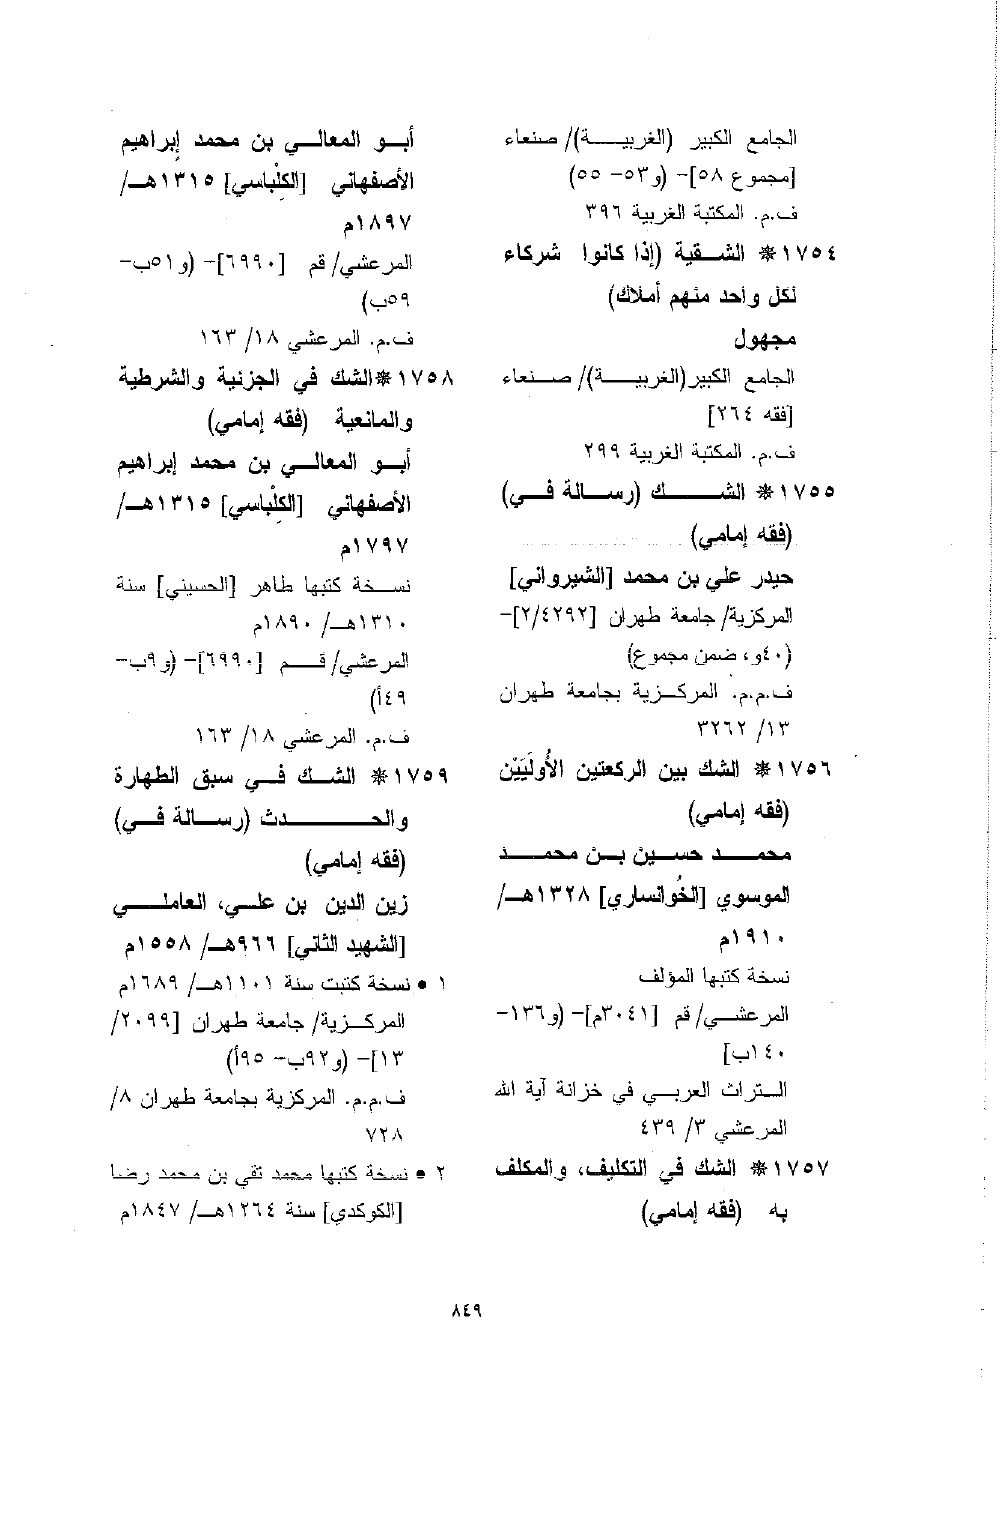 الجامع الكبير (الغربية)/ صنعاء
[مجموع ٥٨]- (و٥٣- ٥٥)
ف.م. المكتبة الغربية ٣٩٦
١٧٥٤* الشقية (إذا كانوا شركاء
لكل واحد منهم أملاك)
مجهول
الجامع الكبير(الغربية)/ صنعاء
[فقه ٢٦٤]
ف.م. المكتبة الغربية ٢٩٩
١٧٥٥* الشك (رسالة في)
(فقه إمامي)
حيدر علي بن محمد [الشيرواني]
المركزية/ جامعة طهران [٢/٤٢٩٢]-
(٤٠و، ضمن مجموع)
ف.م.م. المركزية بجامعة طهران
١٣/ ٣٢٦٢
١٧٥٦* الشك بين الركعتين الأُولَيَيْن
(فقه إمامي)
محمد حسين بن محمد
الموسوي [الخُوانساري] ١٣٢٨هـ/
١٩١٠م
نسخة كتبها المؤلف
المرعشي/ قم [٣٠٤١م]- (و١٣٦-
١٤٠ب]
التراث العربي في خزانة آية الله
المرعشي ٣/ ٤٣٩
١٧٥٧* الشك في التكليف، والمكلف
به (فقه إمامي)
أبو المعالي بن محمد إبراهيم
الأصفهاني [الكِلْباسي] ١٣١٥هـ/
١٨٩٧م
المرعشي/ قم [٦٩٩٠]- (و٥١ب-
٥٩ب)
ف.م. المرعشي ١٨/ ١٦٣
١٧٥٨*الشك في الجزئية والشرطية
والمانعية (فقه إمامي)
أبو المعالي بن محمد إبراهيم
الأصفهاني [الكِلْباسي] ١٣١٥هـ/
١٧٩٧م
نسخة كتبها طاهر [الحسيني] سنة
١٣١٠هـ/ ١٨٩٠م
المرعشي/ قم [٦٩٩٠]- (و٩ب-
٤٩أ)
ف.م. المرعشي ١٨/ ١٦٣
١٧٥٩* الشك في سبق الطهارة
والحدث (رسالة في)
(فقه إمامي)
زين الدين بن علي، العاملي
[الشهيد الثاني] ٩٦٦هـ/ ١٥٥٨م
١ • نسخة كتبت سنة ١١٠١هـ/ ١٦٨٩م
المركزية/ جامعة طهران [٢٠٩٩/
١٣]- (و٩٢ب- ٩٥أ)
ف.م.م. المركزية بجامعة طهران ٨/
٧٢٨
٢ • نسخة كتبها محمد تقي بن محمد رضا
[الكوكدي] سنة ١٢٦٤هـ/ ١٨٤٧م
٨٤٩